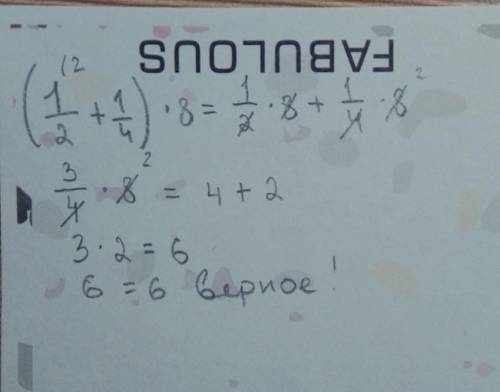 FABULOUS
(1/2 + 1/4) · 8 = 1/2 · 8 + 1/4 · 8
3/4 · 8 = 4 + 2
3 · 2 = 6
6 = 6 верное!